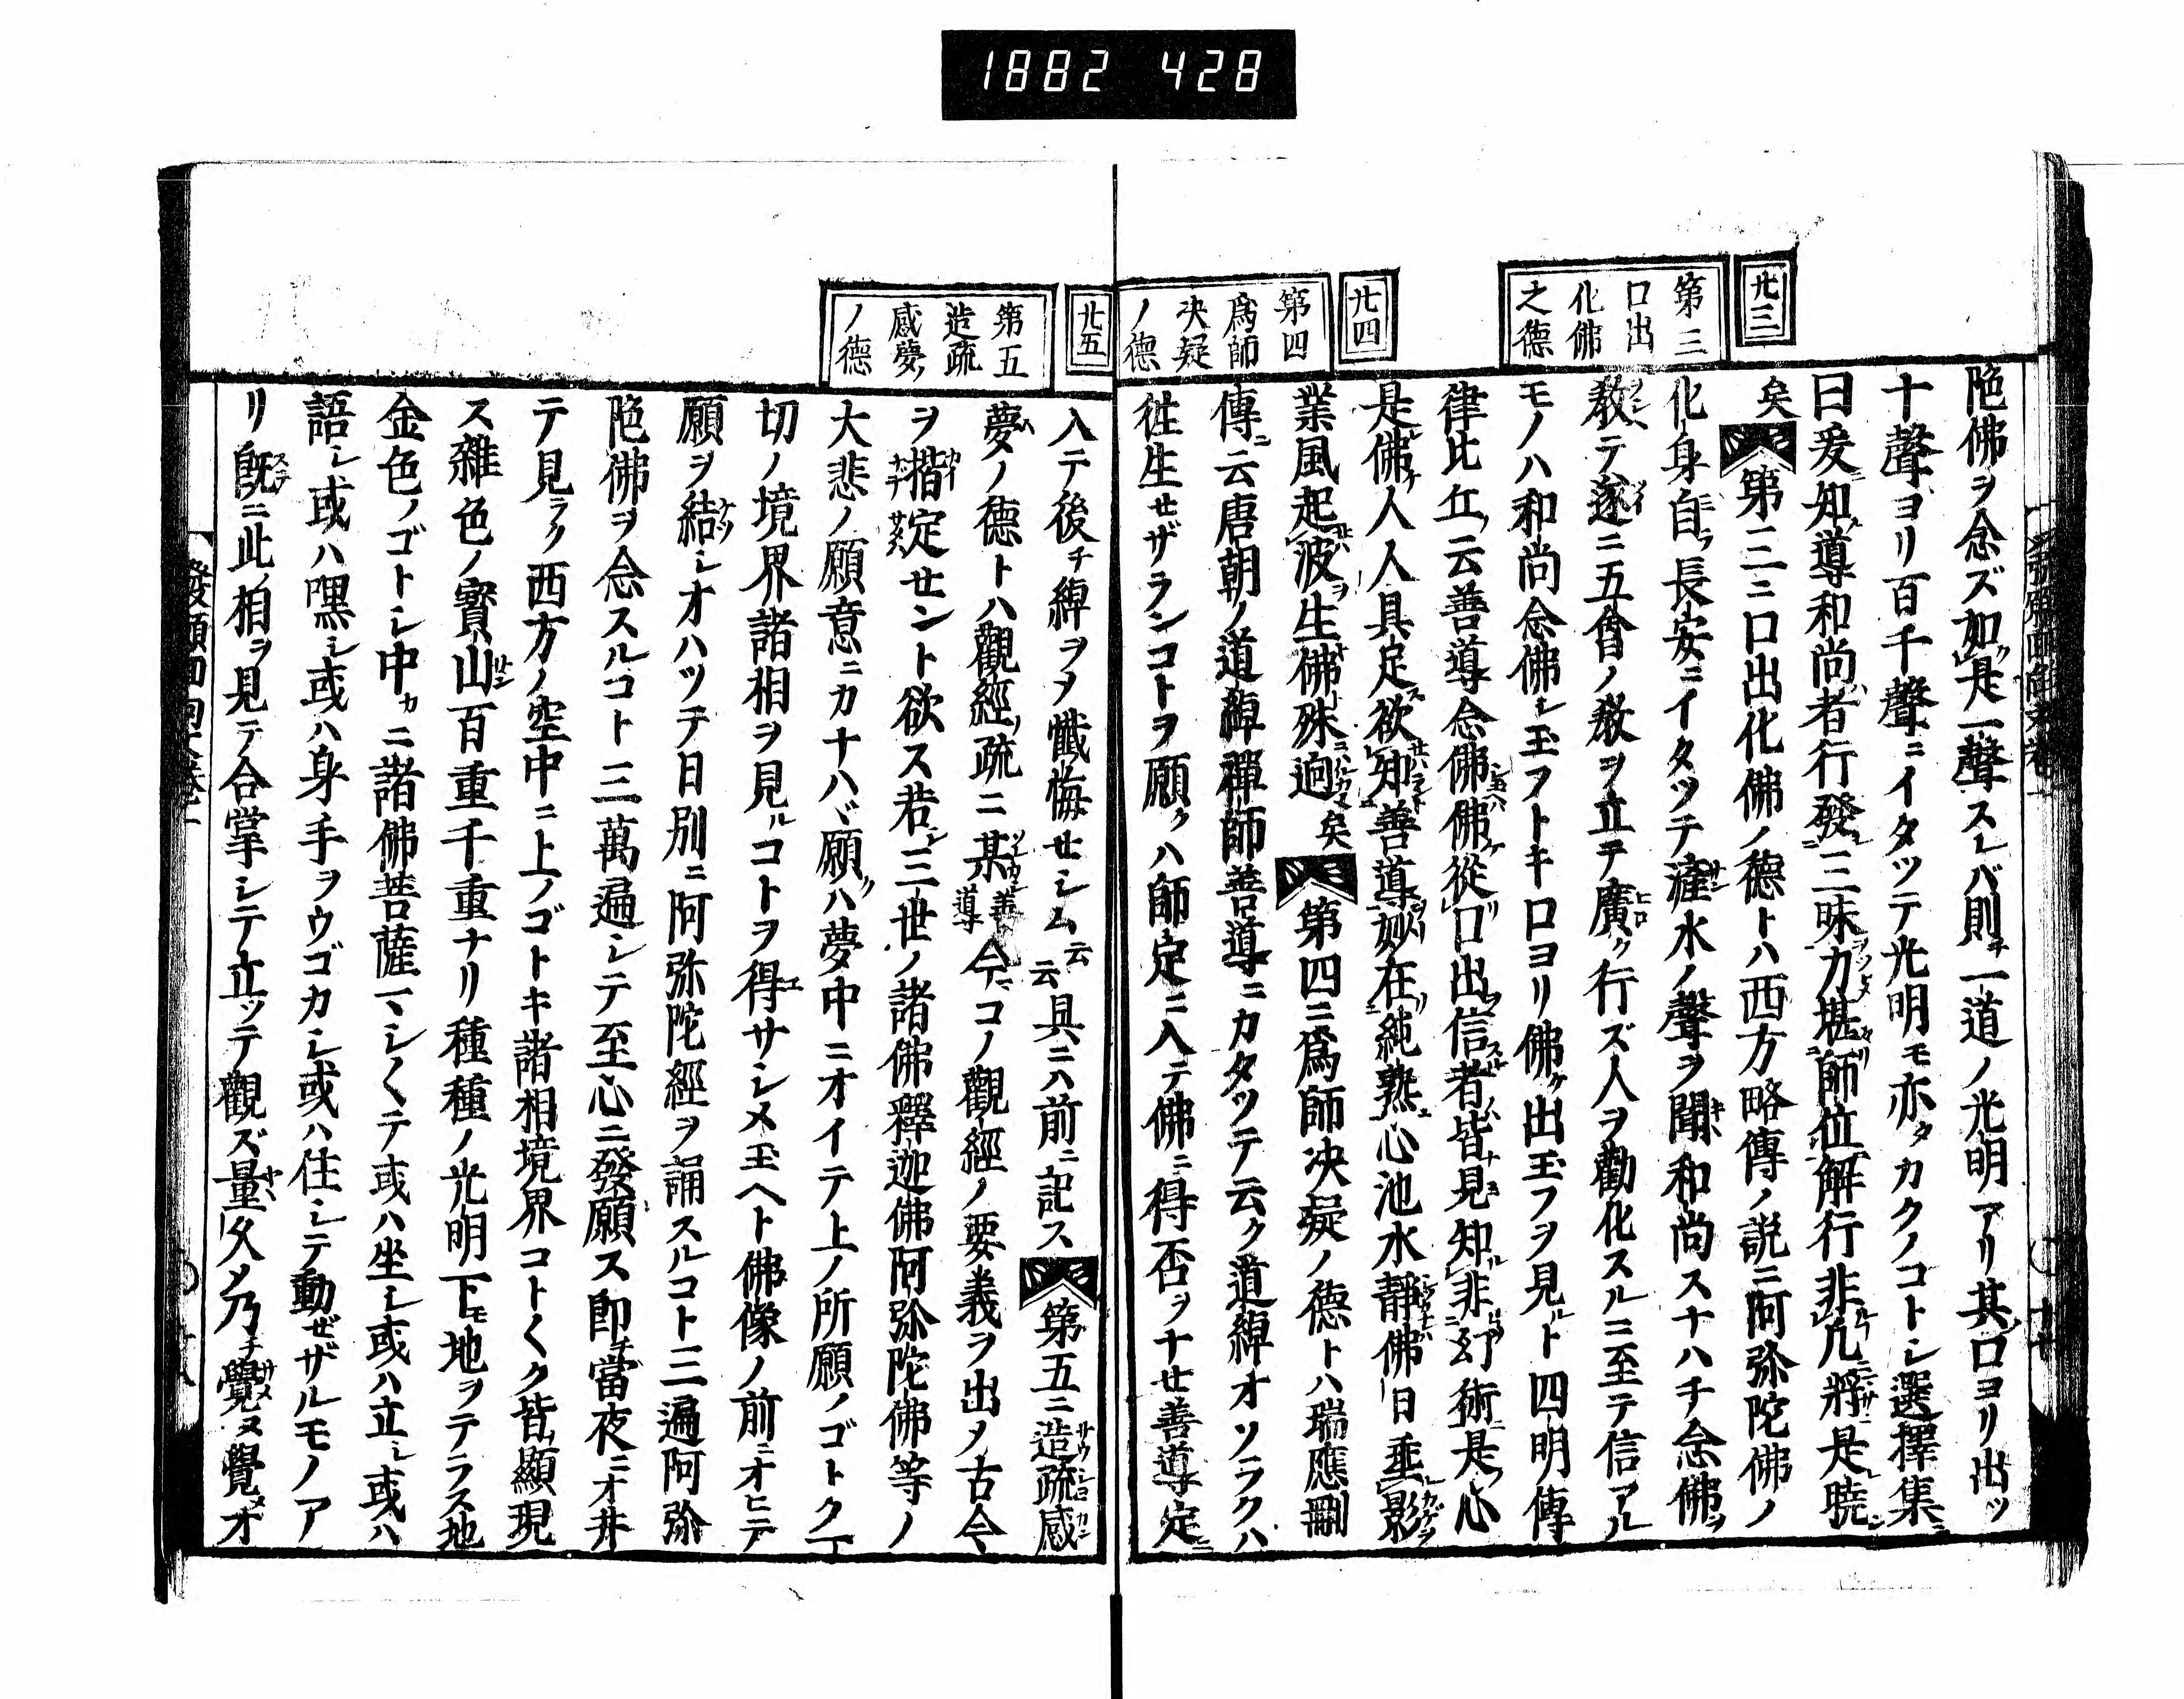 1882 428
廿三
第三
口出
化佛
之德
廿四
第四
爲師
决疑
ノ德
陁佛ヲ念ズ如是一聲スレバ則チ一道ノ光明アリ其口ヨリ出ツ
十聲ヨリ百千聲ニイタツテ光明モ亦タカクノコトシ選擇集ニ
曰爰知導和尚者行發三昧力堪師位解行非凡將是曉
矣第三ニ口出化佛ノ德トハ西方略傳ノ説ニ阿弥陀佛ノ
化身自ラ長安ニイタツテ滻水ノ聲ヲ聞和尚スナハチ念佛ヲ
教テ遂ニ五會ノ教ヲ立テ廣ク行ズ人ヲ勸化スルニ至テ信アル
モノハ和尚念佛シ玉フトキ口ヨリ佛ケ出玉フヲ見ルト四明傳
律比丘ノ云善導念佛佛從口出信者皆見知非幻術是心
是佛人人具足欲知善導妙在純熟心池水靜佛日垂影
業風起波生佛殊逈矣第四ニ爲師决疑ノ德トハ瑞應刪
傳ニ云唐朝ノ道綽禪師善導ニカタツテ云ク道綽オソラクハ
徃生せザランコトヲ願クハ師定ニ入テ佛ニ得否ヲナせ善導定ニ
廿五
第五
造疏
感夢ノ
ノ德
入テ後チ綽ヲヲ懺悔せシム云云具ニハ前ニ記ス第五ニ造疏感
夢ノ德トハ觀經ノ疏ニ某善導今マコノ觀經ノ要義ヲ出メ古今
ヲ揩定せント欲ス若シ三世ノ諸佛釋迦佛阿弥陀佛等ノ
大悲ノ願意ニカナハヾ願クハ夢中ニオイテ上ノ所願ノゴトク一
切ノ境界諸相ヲ見ルコトヲ得サシメ玉ヘト佛像ノ前ニオヒテ
願ヲ結シオハツテ日別ニ阿弥陀經ヲ誦スルコト三遍阿弥
陁佛ヲ念スルコト三萬遍シテ至心ニ發願ス即チ當夜ニオ井
テ見ラク西方ノ空中ニ上ノゴトキ諸相境界コト〱ク皆顯現
ス雜色ノ寳山百重千重ナリ種種ノ光明下モ地ヲテラス地
金色ノゴトシ中カニ諸佛菩薩マシ〱テ或ハ坐シ或ハ立シ或ハ
語シ或ハ嘿シ或ハ身手ヲウゴカシ或ハ住シテ動ぜザルモノア
リ既ニ此相ヲ見テ合掌シテ立ツテ觀ズ量久メ乃チ覺ヌ覺メオ